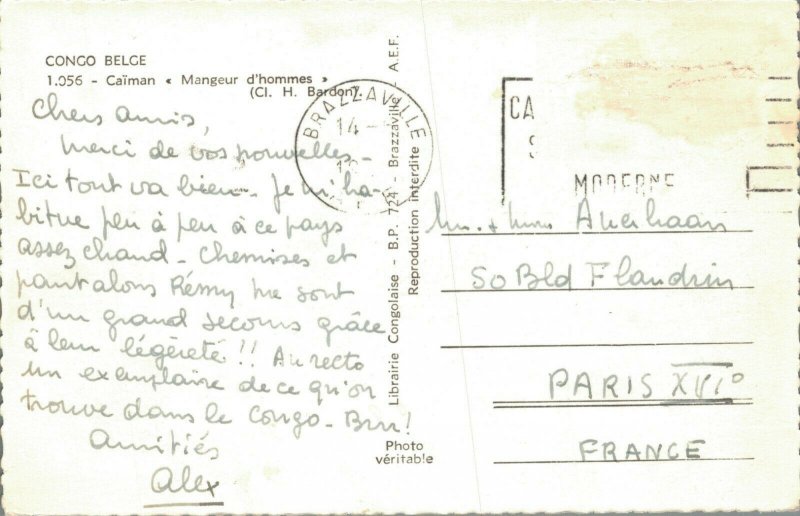 CONGO BELGE
1.056 - Caïman « Mangeur d'hommes »
(Cl. H. Bardon).
Chers amis,
Merci de vos nouvelles -
Ici tout va bien - Je m'ha-
bitue peu à peu à ce pays
assez chaud - Chemises et
pantalons Rémy me sont
d'un grand secours grâce
à leur légèreté !! Au recto
un exemplaire de ce qu'on
trouve dans le Congo - Brr!
Amitiés
Alex
Librairie Congolaise - B.P. 724 - Brazzaville - A.E.F.
Reproduction interdite
Photo
véritable
BRAZZAVILLE
14 -
CA
S
MODERNE
50 Bld Flandrin
PARIS XVI°
FRANCE